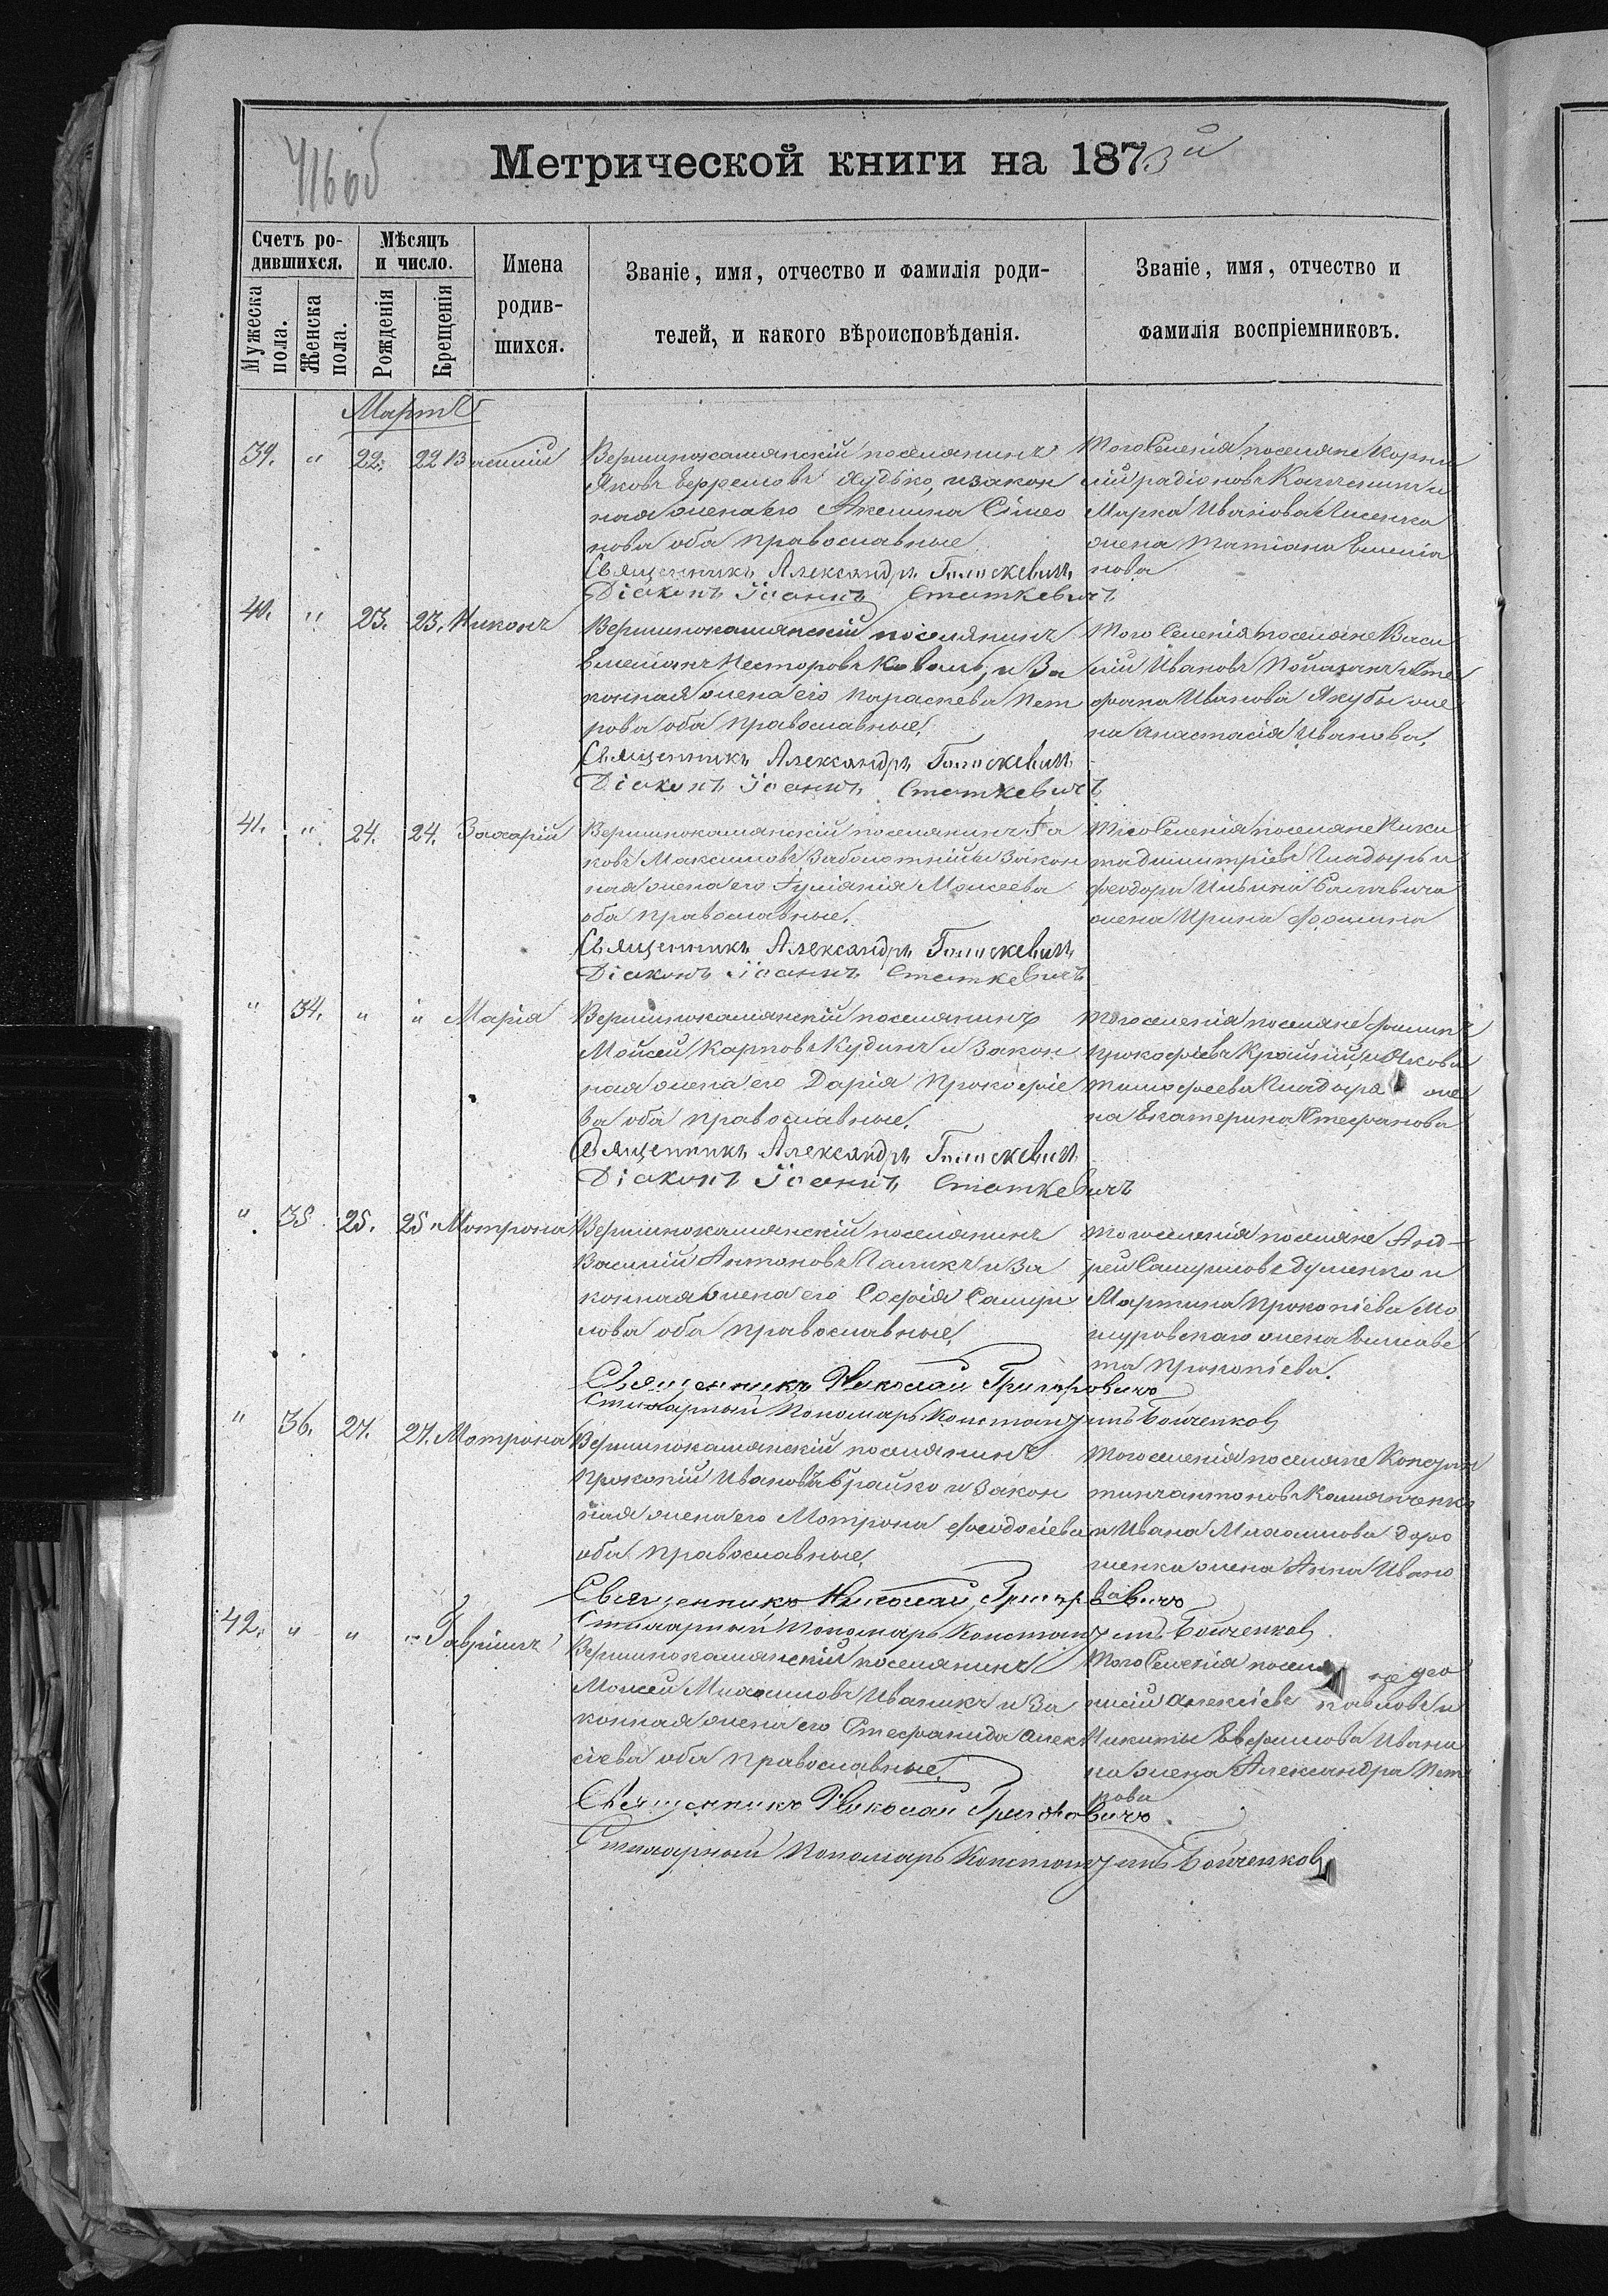 Метрической книги на 1873й
Счетъ ро-
дившихся.
Мужеска пола.
Женска пола.
Мѣсяцъ
и число.
Рожденія
Крещенія
Имена
родив-
шихся.
Званіе, имя, отчество и фамилія роди-
телей, и какого вѣроисповѣданія.
Званіе, имя, отчество и
фамилія воспріемниковъ.
Мартъ
39. " 22. 22 Василій
Вершинокамянскій поселянинъ
Яковъ Ефремовъ Дудько, и закон
ная жена его Акилина Сімео
нова оба православные
Священникъ Александръ
Діаконъ Іоаннъ Статкевичъ
Того Селенія поселяне Корни
лій Радіоновъ и
Марка Иванова Лисенка
жена Татіана Емелія
нова
40. " 23. 23. Никонъ
Вершинокамянскій поселянинъ
Емеліанъ Несторовъ Коваль, и За
конная жена его Параскева Пет
рова оба православные.
Священникъ Александръ
Діаконъ Іоаннъ Статкевичъ
Того Селенія поселяне Васи
лій Ивановъ и Сте
фана Иванова Якубы же
на Анастасія Иванова.
41. " 24. 24. Захарій
Вершинокамянскій поселянинъ Іа
ковъ Максимовъ Заболотній и Закон
ная жена его Іуліанія Моисеева
оба православные.
Священникъ Александръ
Діаконъ Іоаннъ Статкевичъ
Того Селенія поселяне Ники
та Димитріевъ Гладырь и
Феодора Ильина
жена Ирина Фомина
" 34. " " Марія
Вершинокамянскій поселянинъ
Мойсей Карповъ Кудинъ и Закон
ная жена его Дарія Прокофіе
ва оба православные.
Священникъ Александръ
Діаконъ Іоаннъ Статкевичъ
Того селенія поселяне Филипъ
Прокофіевъ Крайній, и Якова
Тимофеева Гладыря же
на Екатерина Стефанова
" 35 25. 25. Мотрона
Вершинокамянскій поселянинъ
Василій Антоновъ Галикъ и За
конная жена его Софія Самуи
лова оба православные.
Священникъ Николай Григоровичъ
Стихарный Пономарь Константинъ Бойченковъ
Того селенія поселяне Анд-
рей Самуиловъ Думенко и
Мартина Прокопіева Мо
шуровскаго жена Елисаве
та Прокопіева.
" 36. 27. 27. Мотрона
Вершинокамянскій поселянинъ
Прокопій Ивановъ Брайко и Закон
ная жена его Мотрона Феодосіева
оба православные.
Священникъ Николай Григоровичъ
Стихарный Пономарь Константинъ Бойченковъ
Того селенія поселяне Констан
тинъ Антоновъ Камянченко
и Ивана Михаилова Доро
шенка жена Анна Ивано
ва
42. " " " Гавріилъ
Вершинокамянскій поселянинъ
Моисей Михаиловъ Иваникъ и За
конная жена его Стефанида Алек
сіева оба православные.
Священникъ Николай Григоровичъ
Стихарный Пономарь Константинъ Бойченковъ
Того Селенія поселяне Део
нисій Алексіевъ Павловъ и
Никиты Евфимова Ивани
ка жена Александра Пет
рова